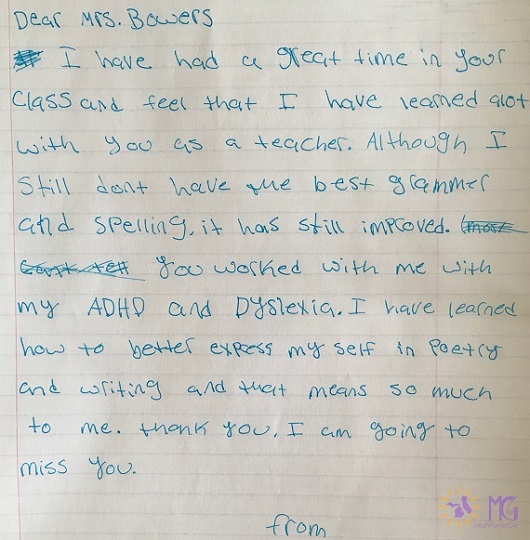 Dear Mrs. Bowers
I have had a great time in your
class and feel that I have learned alot
with you as a teacher. Although I
still dont have the best grammer
and spelling, it has still improved.
You worked with me with
my ADHD and Dyslexia. I have learned
how to better express my self in Poetry
and writing and that means so much
to me. thank you, I am going to
miss you.
from
MG